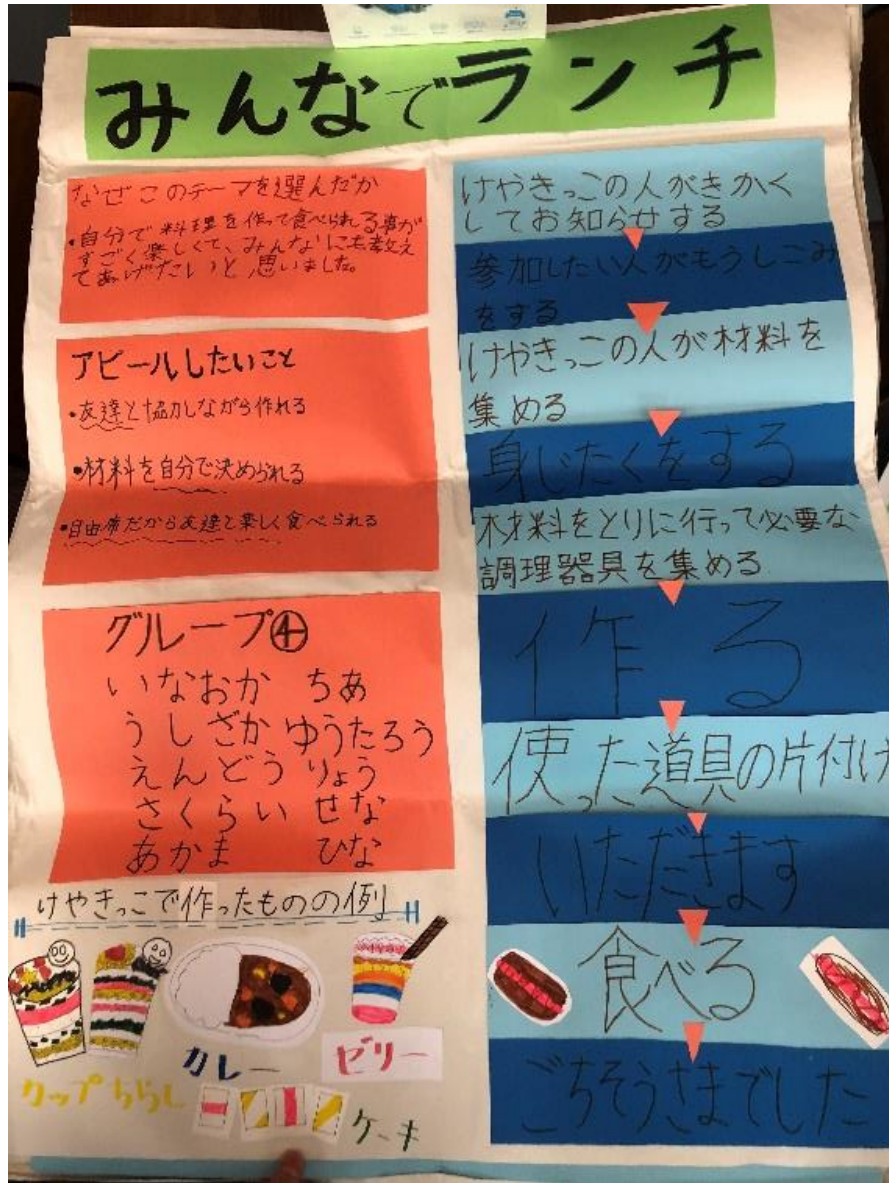 みんなでランチ
なぜこのテーマを選んだか
・自分で料理を作って食べられる事が
すごく楽しくて、みんなにも教え
てあげたいと思いました。
アピールしたいこと
・友達と協力しながら作れる
・材料を自分で決められる
・自由席だから友達と楽しく食べられる
グループ④
いなおか ちあ
うしざか ゆうたろう
えんどう りょう
さくらい せな
あかま ひな
けやきっこで作ったものの例
カップちらし
カレー
ゼリー
ケーキ
けやきっこの人がきかく
してお知らせする
参加したい人がもうしこみ
をする
けやきっこの人が材料を
集める
身じたくをする
材料をとりに行って必要な
調理器具を集める
作る
使った道具の片付け
いただきます
食べる
ごちそうさまでした